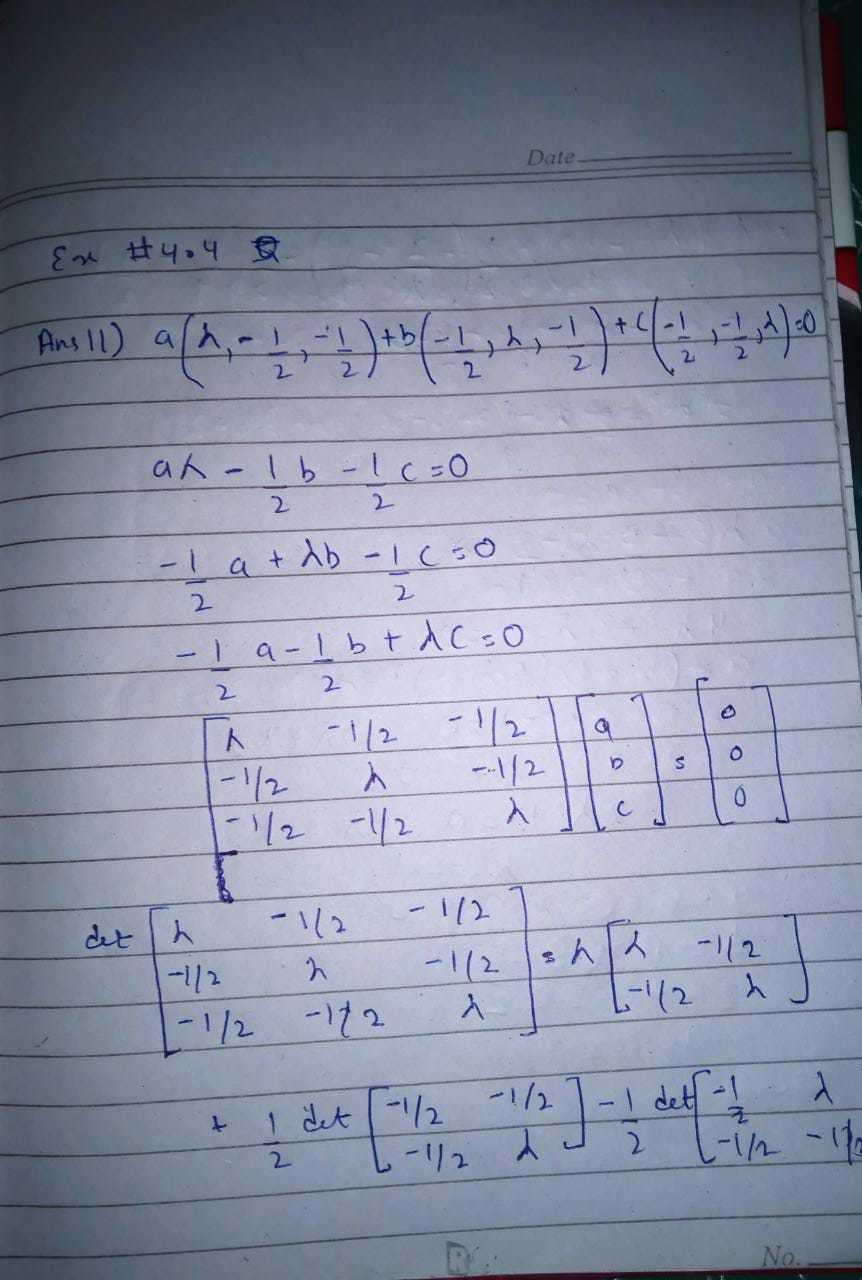 Date
Ex #4.4 Q
Ans 11) a(λ, -1/2, -1/2) + b(-1/2, λ, -1/2) + c(-1/2, -1/2, λ) = 0
aλ - 1/2 b - 1/2 c = 0
-1/2 a + λb - 1/2 c = 0
-1/2 a - 1/2 b + λc = 0
[λ -1/2 -1/2] [a] [0]
[-1/2 λ -1/2] [b] = [0]
[-1/2 -1/2 λ] [c] [0]
det [λ -1/2 -1/2] = λ [λ -1/2]
[-1/2 λ -1/2] [-1/2 λ]
[-1/2 -1/2 λ]
+ 1/2 det [-1/2 -1/2] - 1/2 det [-1/2 λ]
[-1/2 λ] [-1/2 -1/2
No.